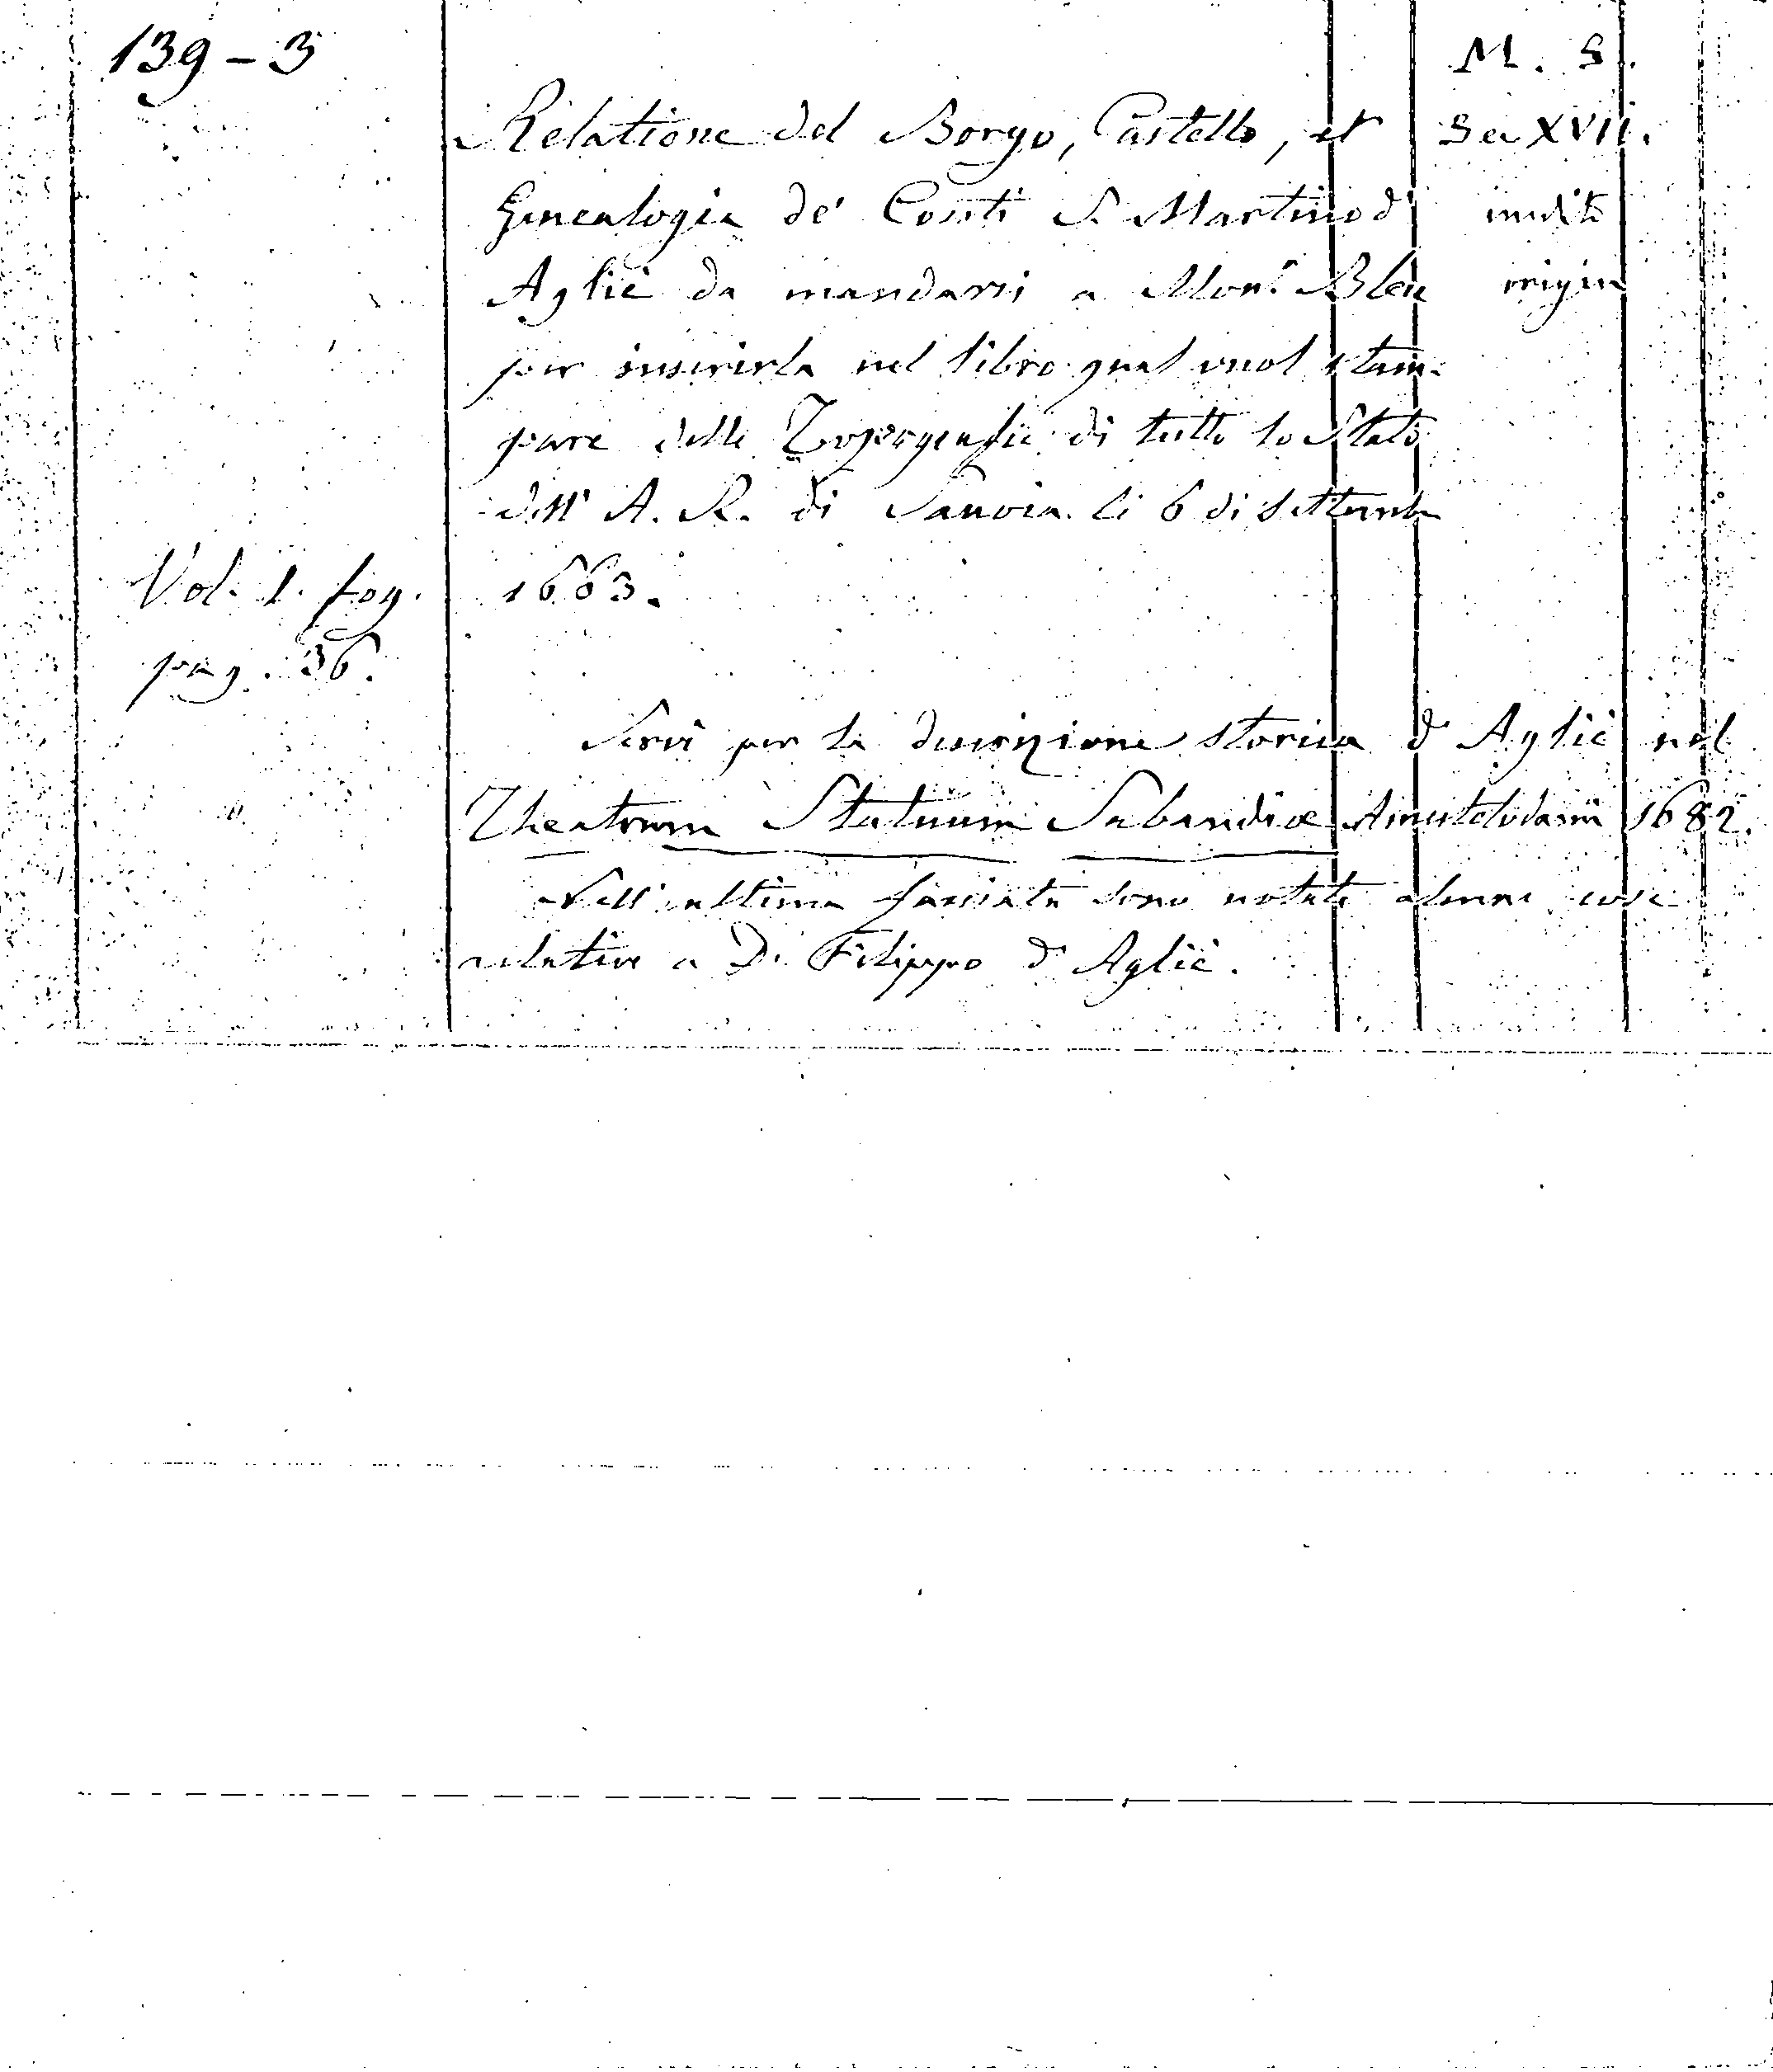 139 - 3
M. S.
Relatione del Borgo, Castello, et
Sec XVII.
Genealogia de' Conti S. Martino d'
inedito
Agliè da mandarsi a Monr. Bleu
origin
per inserirla nel libro qual vuol stam-
pare delle Topografie di tutto lo Stato
dell' A. R. di Savoia. li 6 di Settembre
1663.
Vol. 1. fog.
pag. 36.
Servì per la descrizione storica d' Agliè nel
Theatrum Statuum Sabaudiæ Amstelodami 1682.
Nell' ultima facciata sono notate alcune cose
relative a D. Filippo d' Agliè.